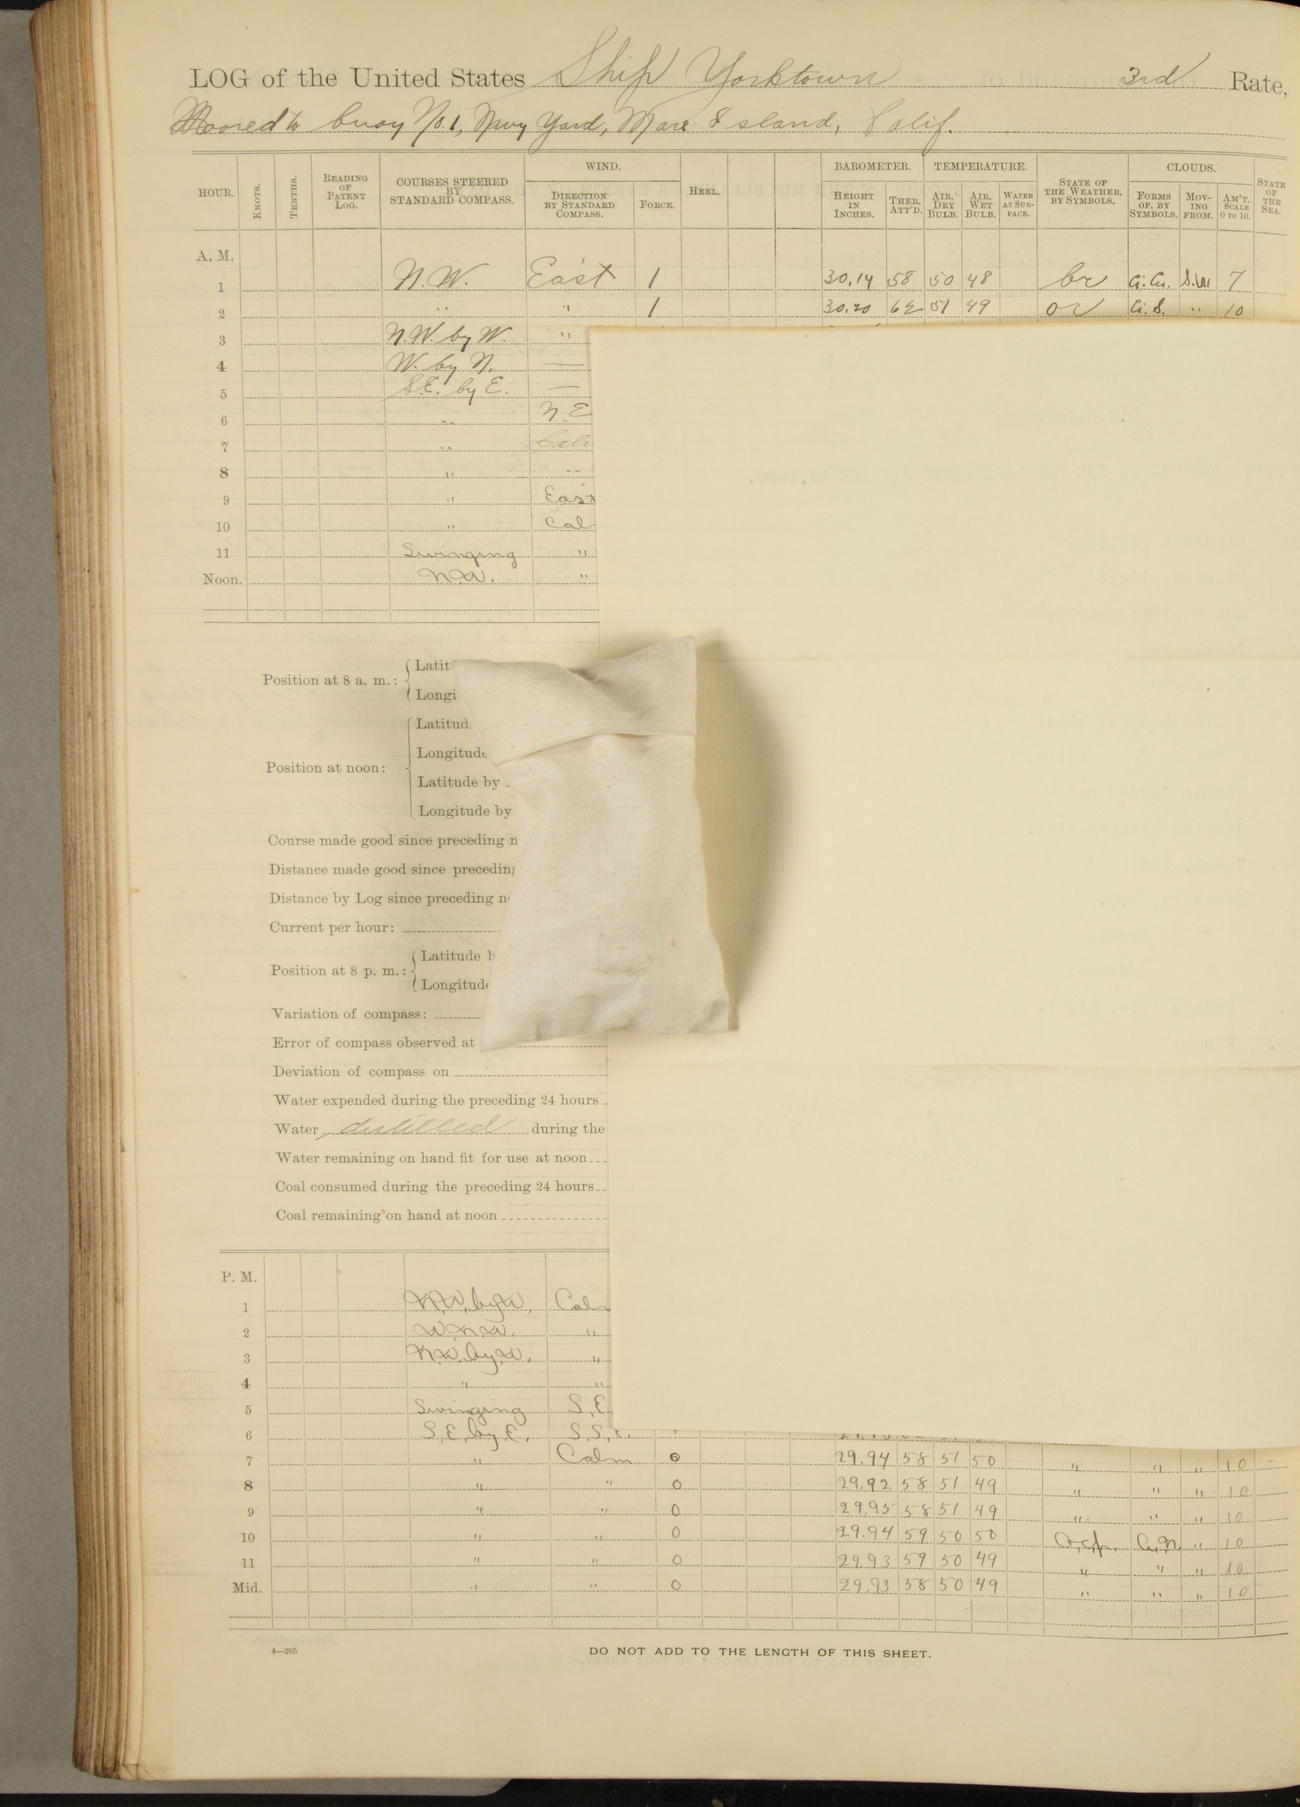 LOG of the United States Ship Yorktown 3rd Rate,
Moored to buoy No. 1, Navy Yard, Mare Island, Calif.
HOUR. KNOTS. TENTHS. READING OF PATENT LOG. COURSES STEERED BY STANDARD COMPASS. WIND. DIRECTION BY STANDARD COMPASS. FORCE. HEEL. BAROMETER. HEIGHT IN INCHES. THER. ATT'D. TEMPERATURE. AIR, DRY BULB. AIR, WET BULB. WATER AT SUR-FACE. STATE OF THE WEATHER, BY SYMBOLS. CLOUDS. FORMS OF, BY SYMBOLS. MOV-ING FROM. AM'T. SCALE 0 TO 10. STATE OF THE SEA.
A. M.
1 N.W. East 1 30.14 58 50 48 bc Ci. Cu. S.W 7
2 " " 1 30.20 62 51 49 Ci. S. " 10
3 N.W. by W. "
4 W. by N. —
5 S.E. by E. —
6 " N.E
7 "
8 " "
9 " East
10 " Cal
11 Swinging "
Noon. N.W. "
Position at 8 a. m.: Latit
Longi
Position at noon: Latitud
Longitude
Latitude by
Longitude by
Course made good since preceding n
Distance made good since preceding
Distance by Log since preceding n
Current per hour:
Position at 8 p. m.: Latitude b
Longitude
Variation of compass:
Error of compass observed at
Deviation of compass on
Water expended during the preceding 24 hours
Water, distilled during the
Water remaining on hand fit for use at noon
Coal consumed during the preceding 24 hours
Coal remaining on hand at noon
P. M.
1 N.W. by W. Calm
2 W.N.W. "
3 N.W. by W. "
4 " "
5 Swinging S.E.
6 S.E. by E. S.S.E.
7 " Calm 0 29.94 58 51 50 " " " 10 —
8 " " 0 29.92 58 51 49 " " " 10
9 " " 0 29.95 58 51 49 " " " 10
10 " " 0 29.94 59 50 50 " 10
11 " " 0 29.93 59 50 49 " " " 10
Mid. " " 0 29.93 58 50 49 " " " 10
4—265 DO NOT ADD TO THE LENGTH OF THIS SHEET.